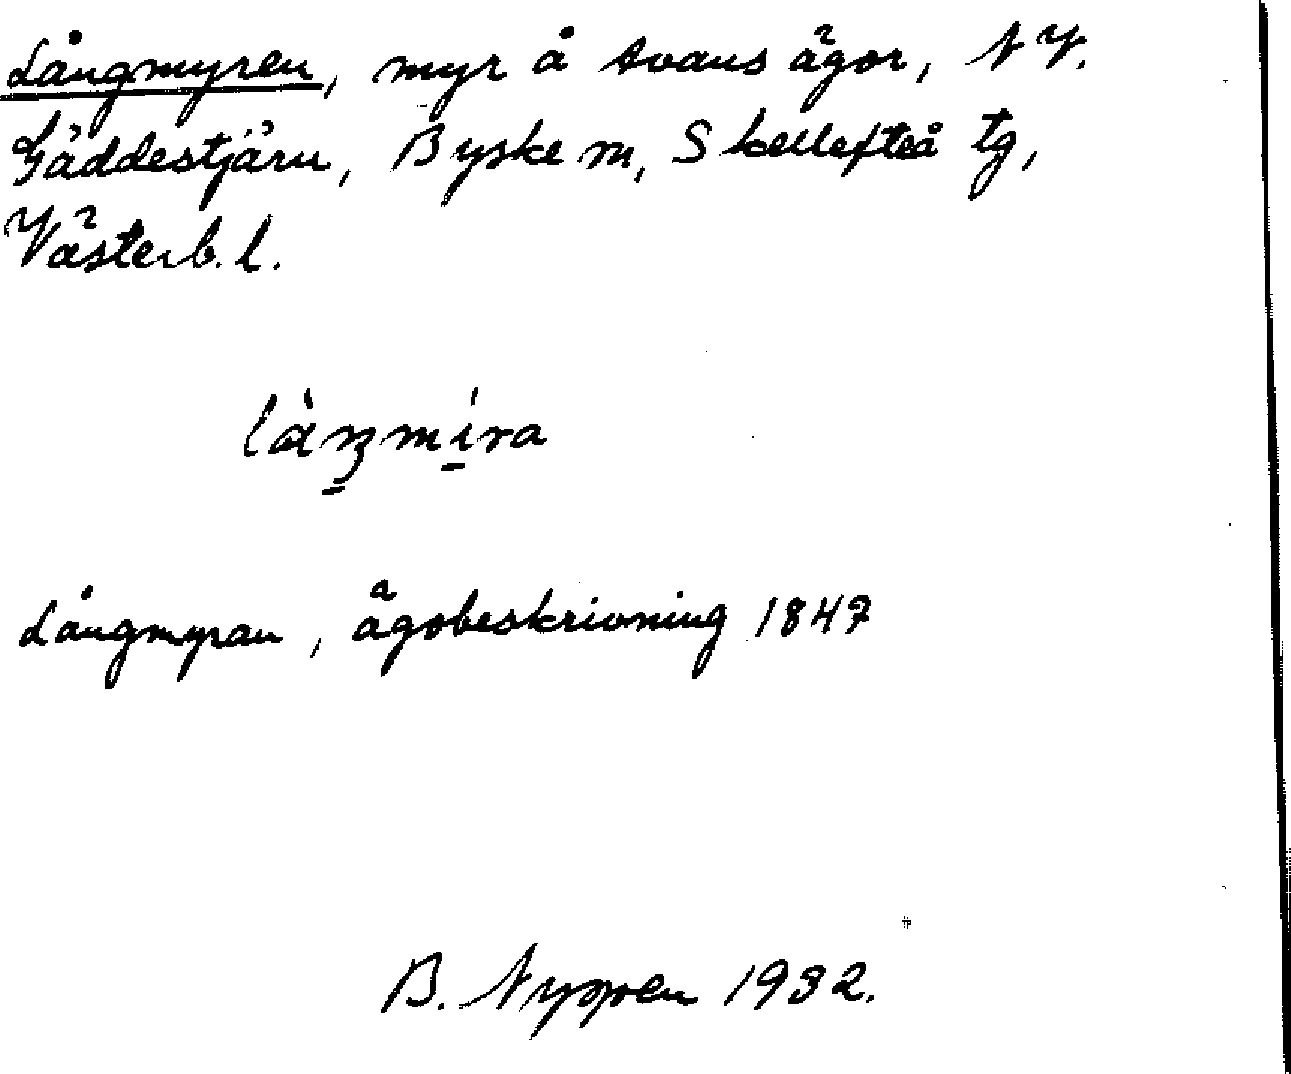 Långmyren, myr å Avans ägor, NV.
Gäddestjärn, Byske sn, Skellefteå tg,
Västerb. l.
Långmyran, ägobeskrivning 1847
B. Nyppen 1932.